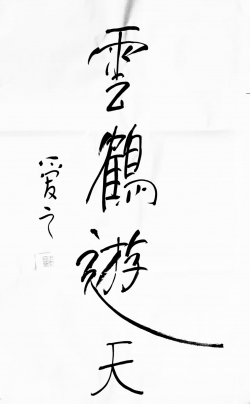 雲鶴遊天
愛之